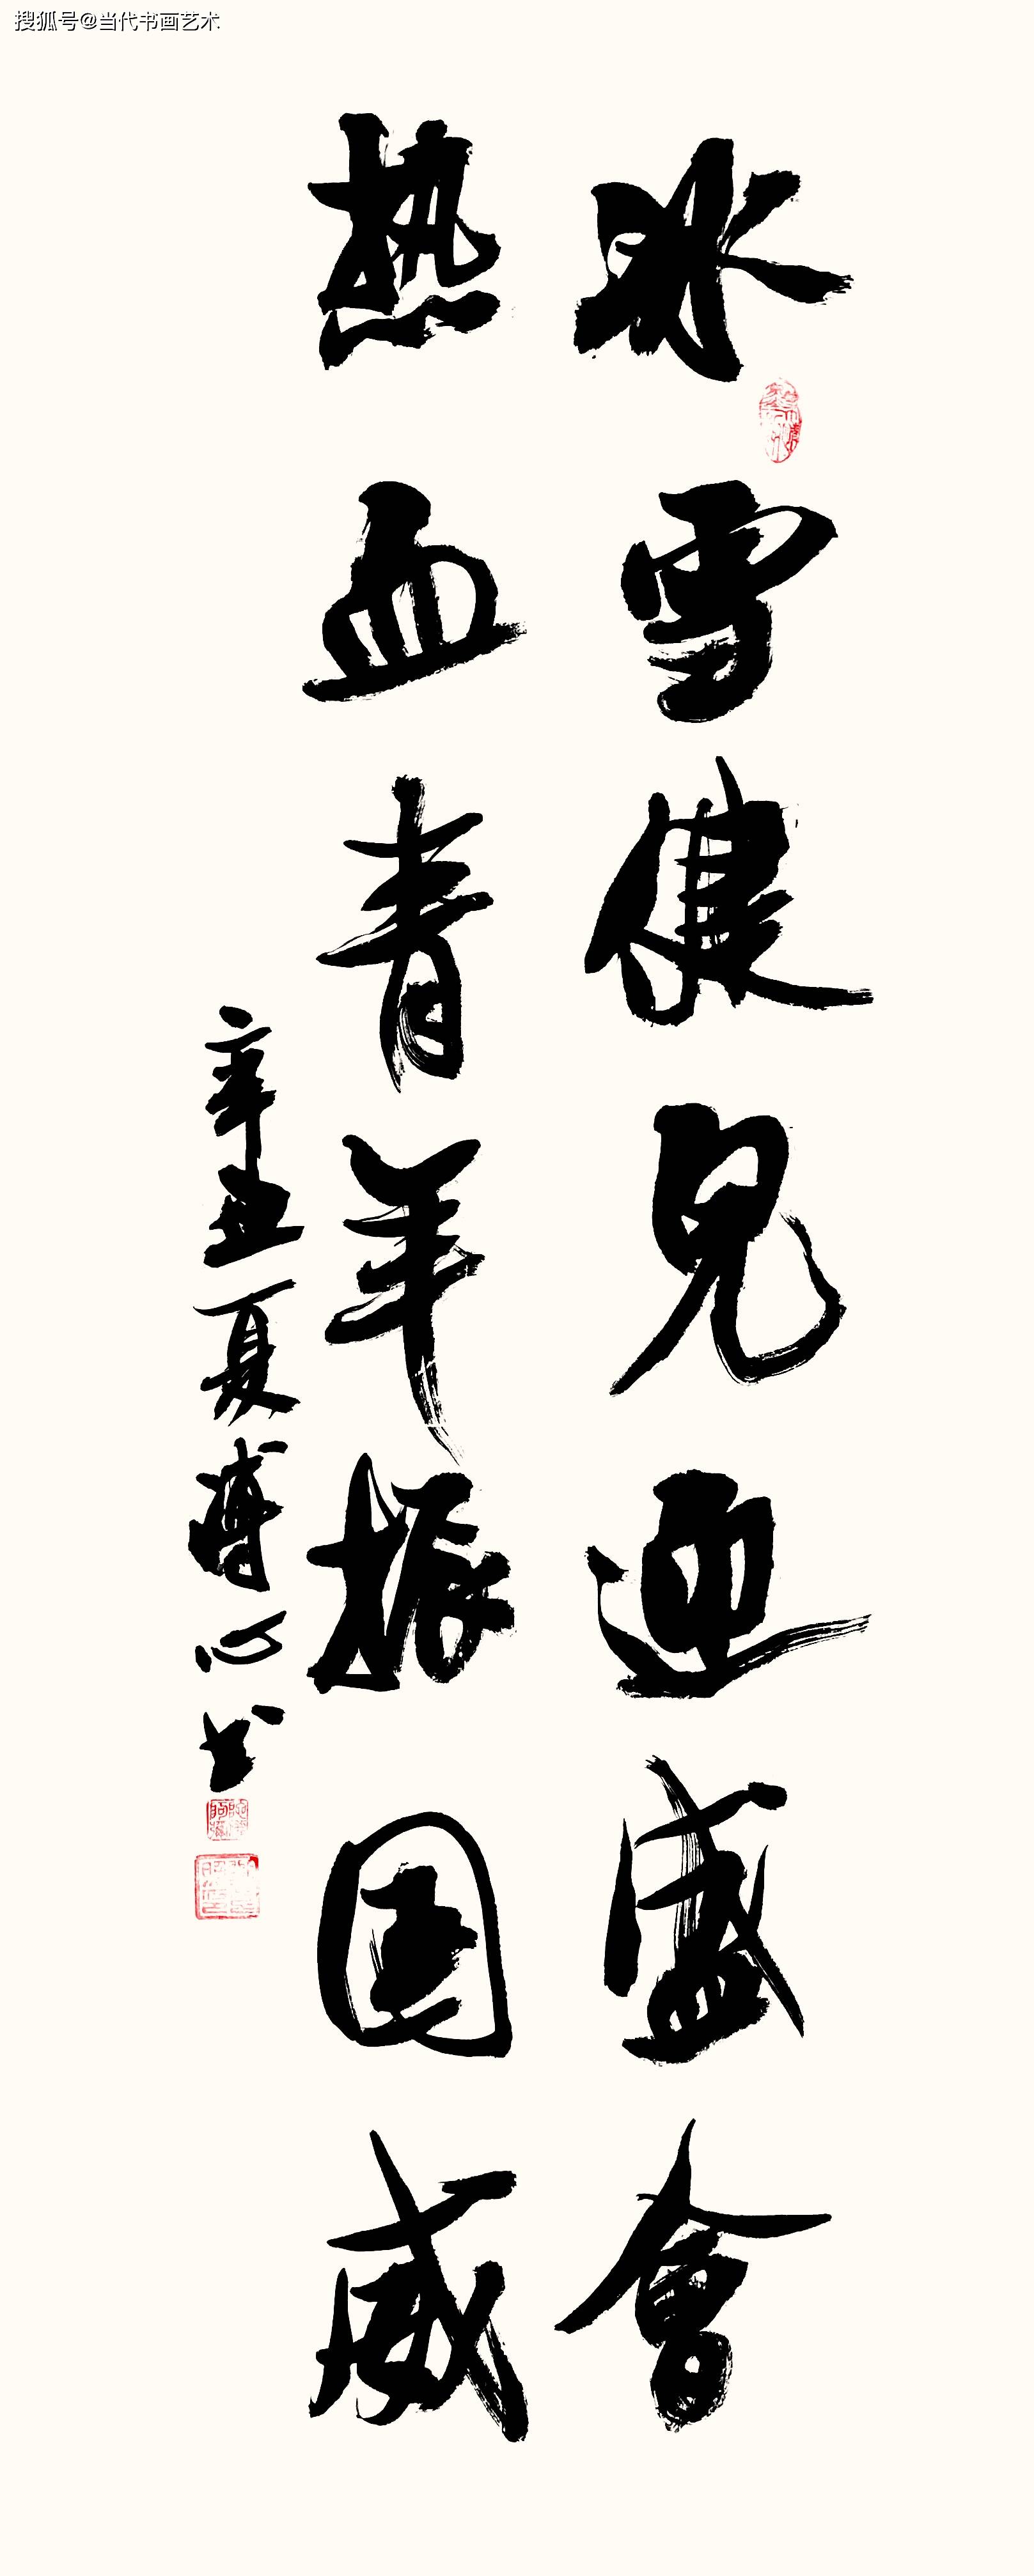 搜狐号@当代书画艺术
冰雪健兒迎盛會
热血青年振国威
辛丑夏博心书